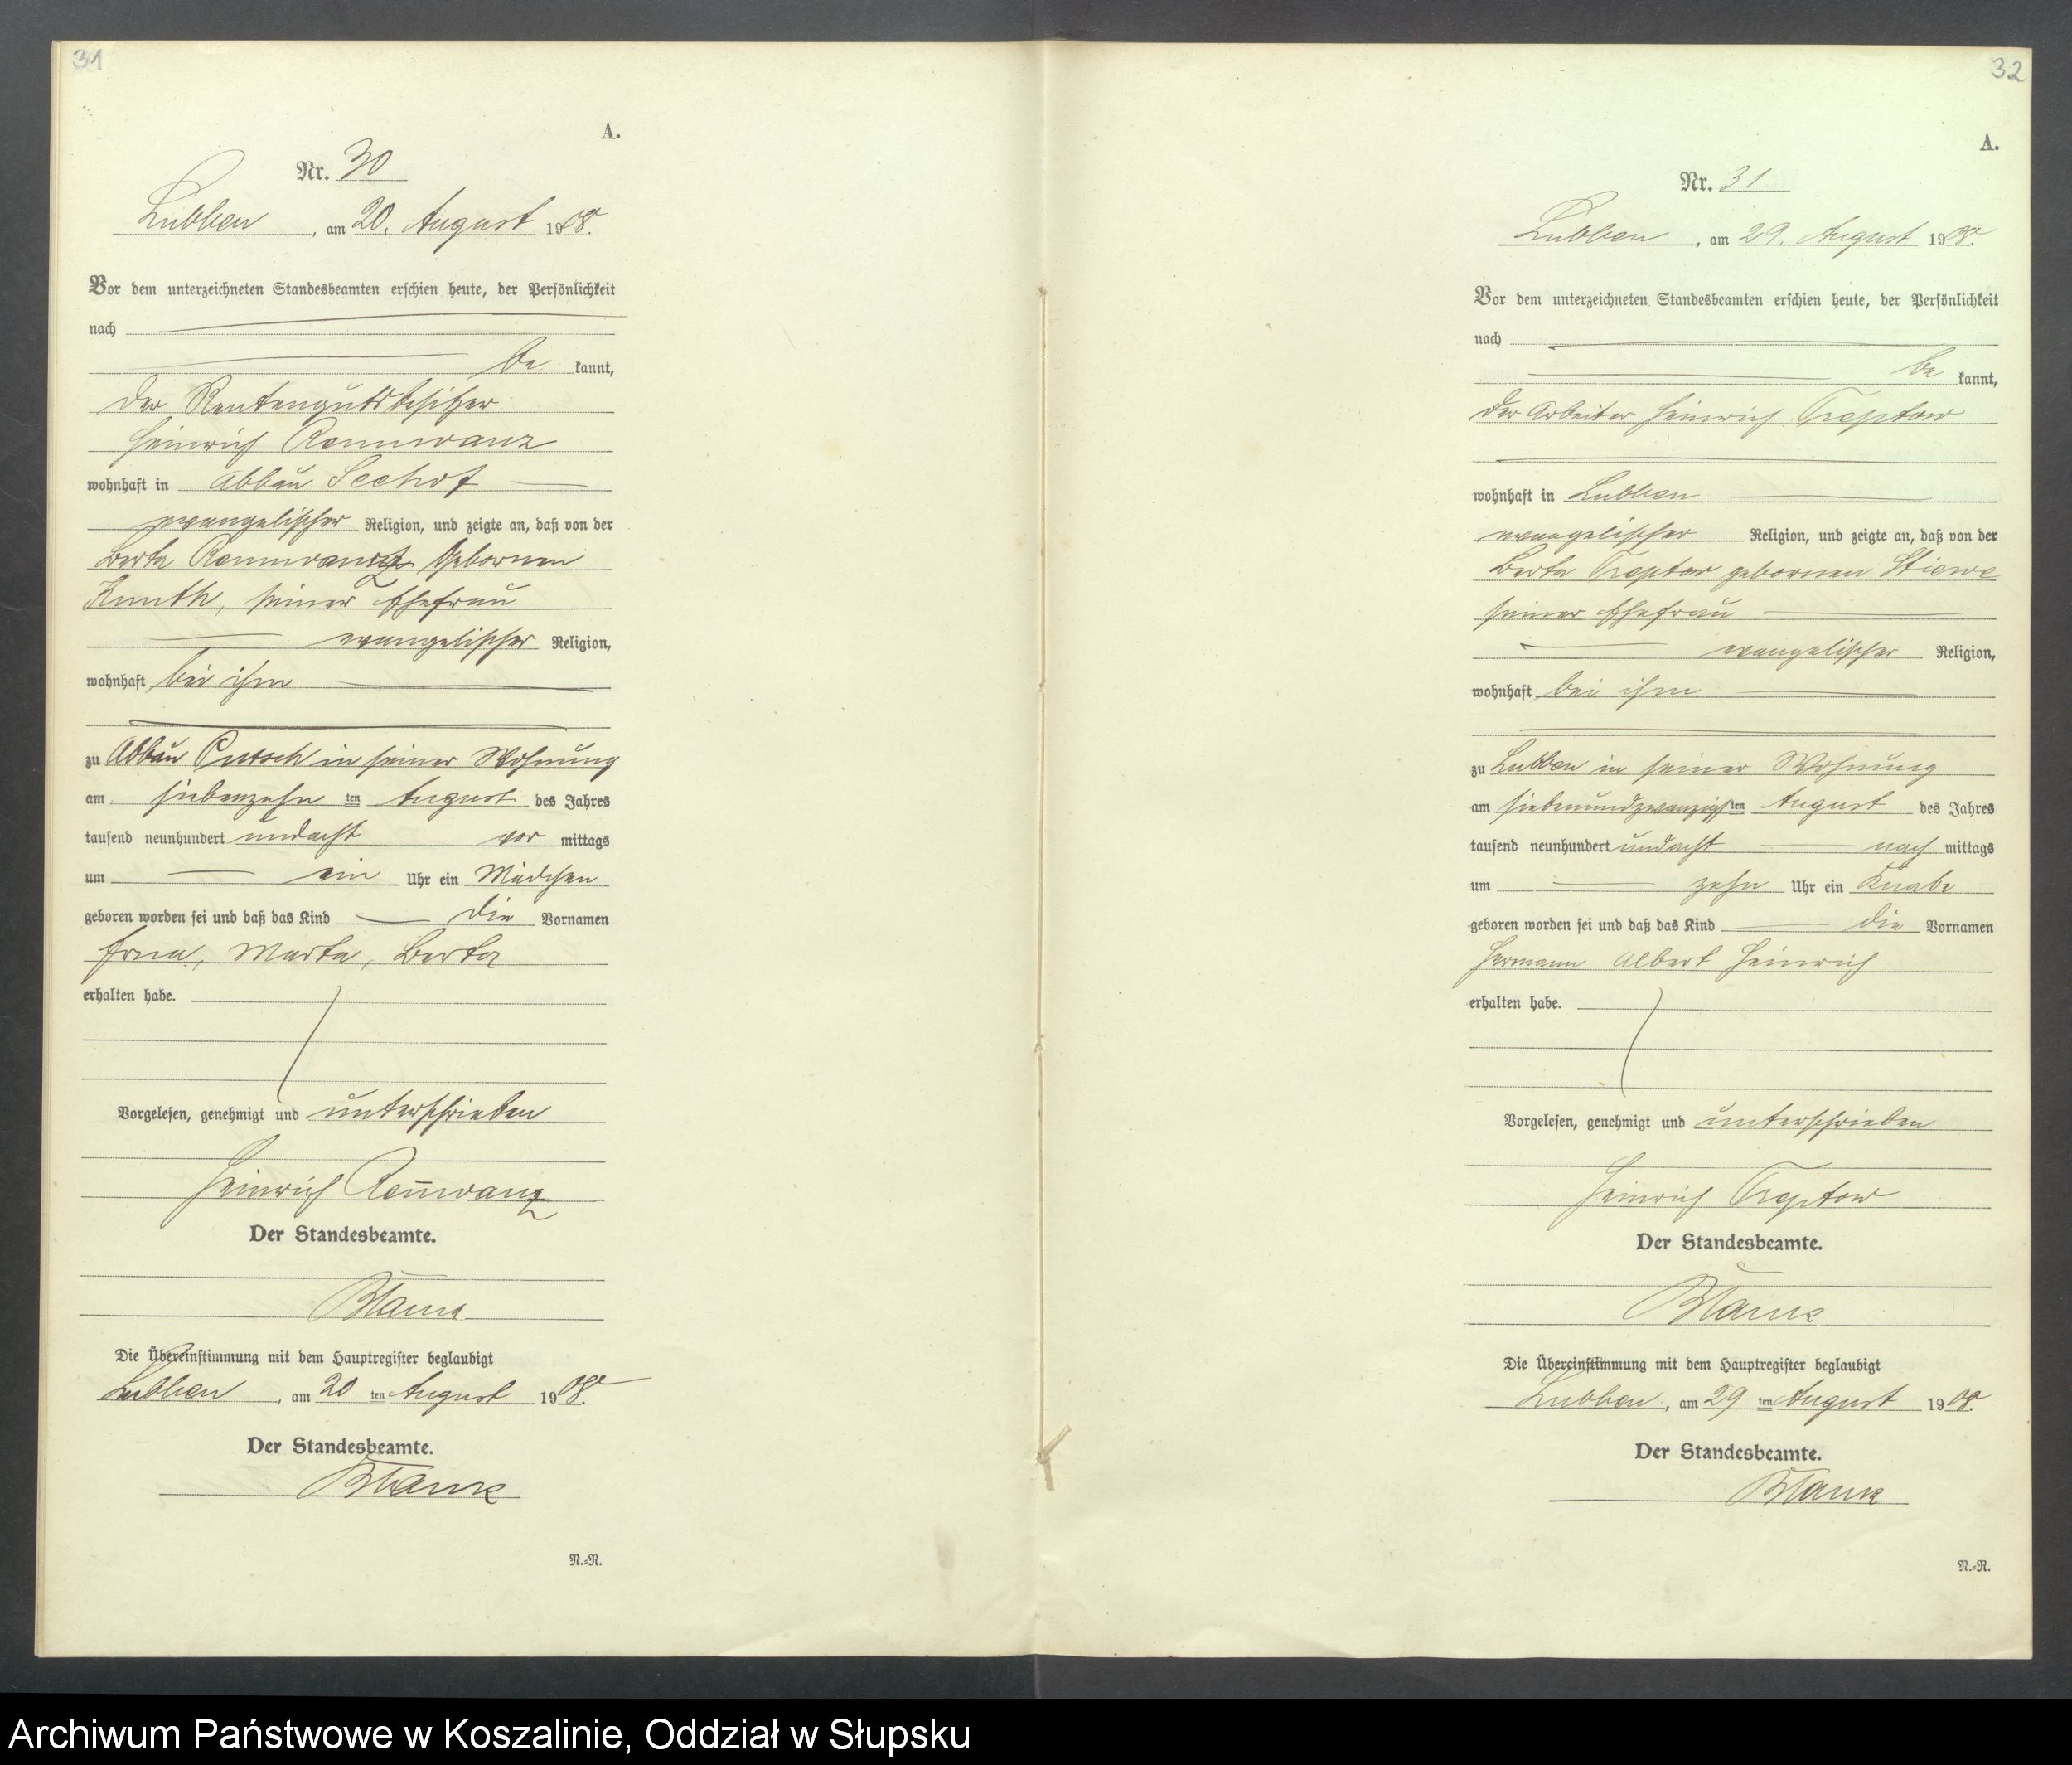 31
A.
Nr. 30
Lubben, am 20. August 1908.
Vor dem unterzeichneten Standesbeamten erschien heute, der Persönlichkeit
nach
be kannt,
der Rentengutsbesitzer
Heinrich Rennwanz
wohnhaft in Abbau Seehof
evangelischer Religion, und zeigte an, daß von der
Berta Rennwanz gebornen
Knuth, seiner Ehefrau
evangelischer Religion,
wohnhaft bei ihm
zu Abbau in seiner Wohnung
am siebenzehn ten August des Jahres
tausend neunhundert undacht vor mittags
um ein Uhr ein Mädchen
geboren worden sei und daß das Kind die Vornamen
Erna, Marta, Berta
erhalten habe.
Vorgelesen, genehmigt und unterschrieben
Heinrich Rennwanz
Der Standesbeamte.
Die Übereinstimmung mit dem Hauptregister beglaubigt
Lubben, am 20 ten August 1908.
Der Standesbeamte.
N.=R.
32
A.
Nr. 31
Lubben, am 29. August 1908.
Vor dem unterzeichneten Standesbeamten erschien heute, der Persönlichkeit
nach
be kannt,
der Arbeiter Heinrich Treptow
wohnhaft in Lubben
evangelischer Religion, und zeigte an, daß von der
Berta Treptow gebornen Stiewe
seiner Ehefrau
evangelischer Religion,
wohnhaft bei ihm
zu Lubben in seiner Wohnung
am siebenundzwanzigs ten August des Jahres
tausend neunhundert undacht nach mittags
um zehn Uhr ein Knabe
geboren worden sei und daß das Kind die Vornamen
Hermann Albert Heinrich
erhalten habe.
Vorgelesen, genehmigt und unterschrieben
Heinrich Treptow
Der Standesbeamte.
Die Übereinstimmung mit dem Hauptregister beglaubigt
Lubben, am 29 ten August 1908.
Der Standesbeamte.
N.=R.
Archiwum Państwowe w Koszalinie, Oddział w Słupsku